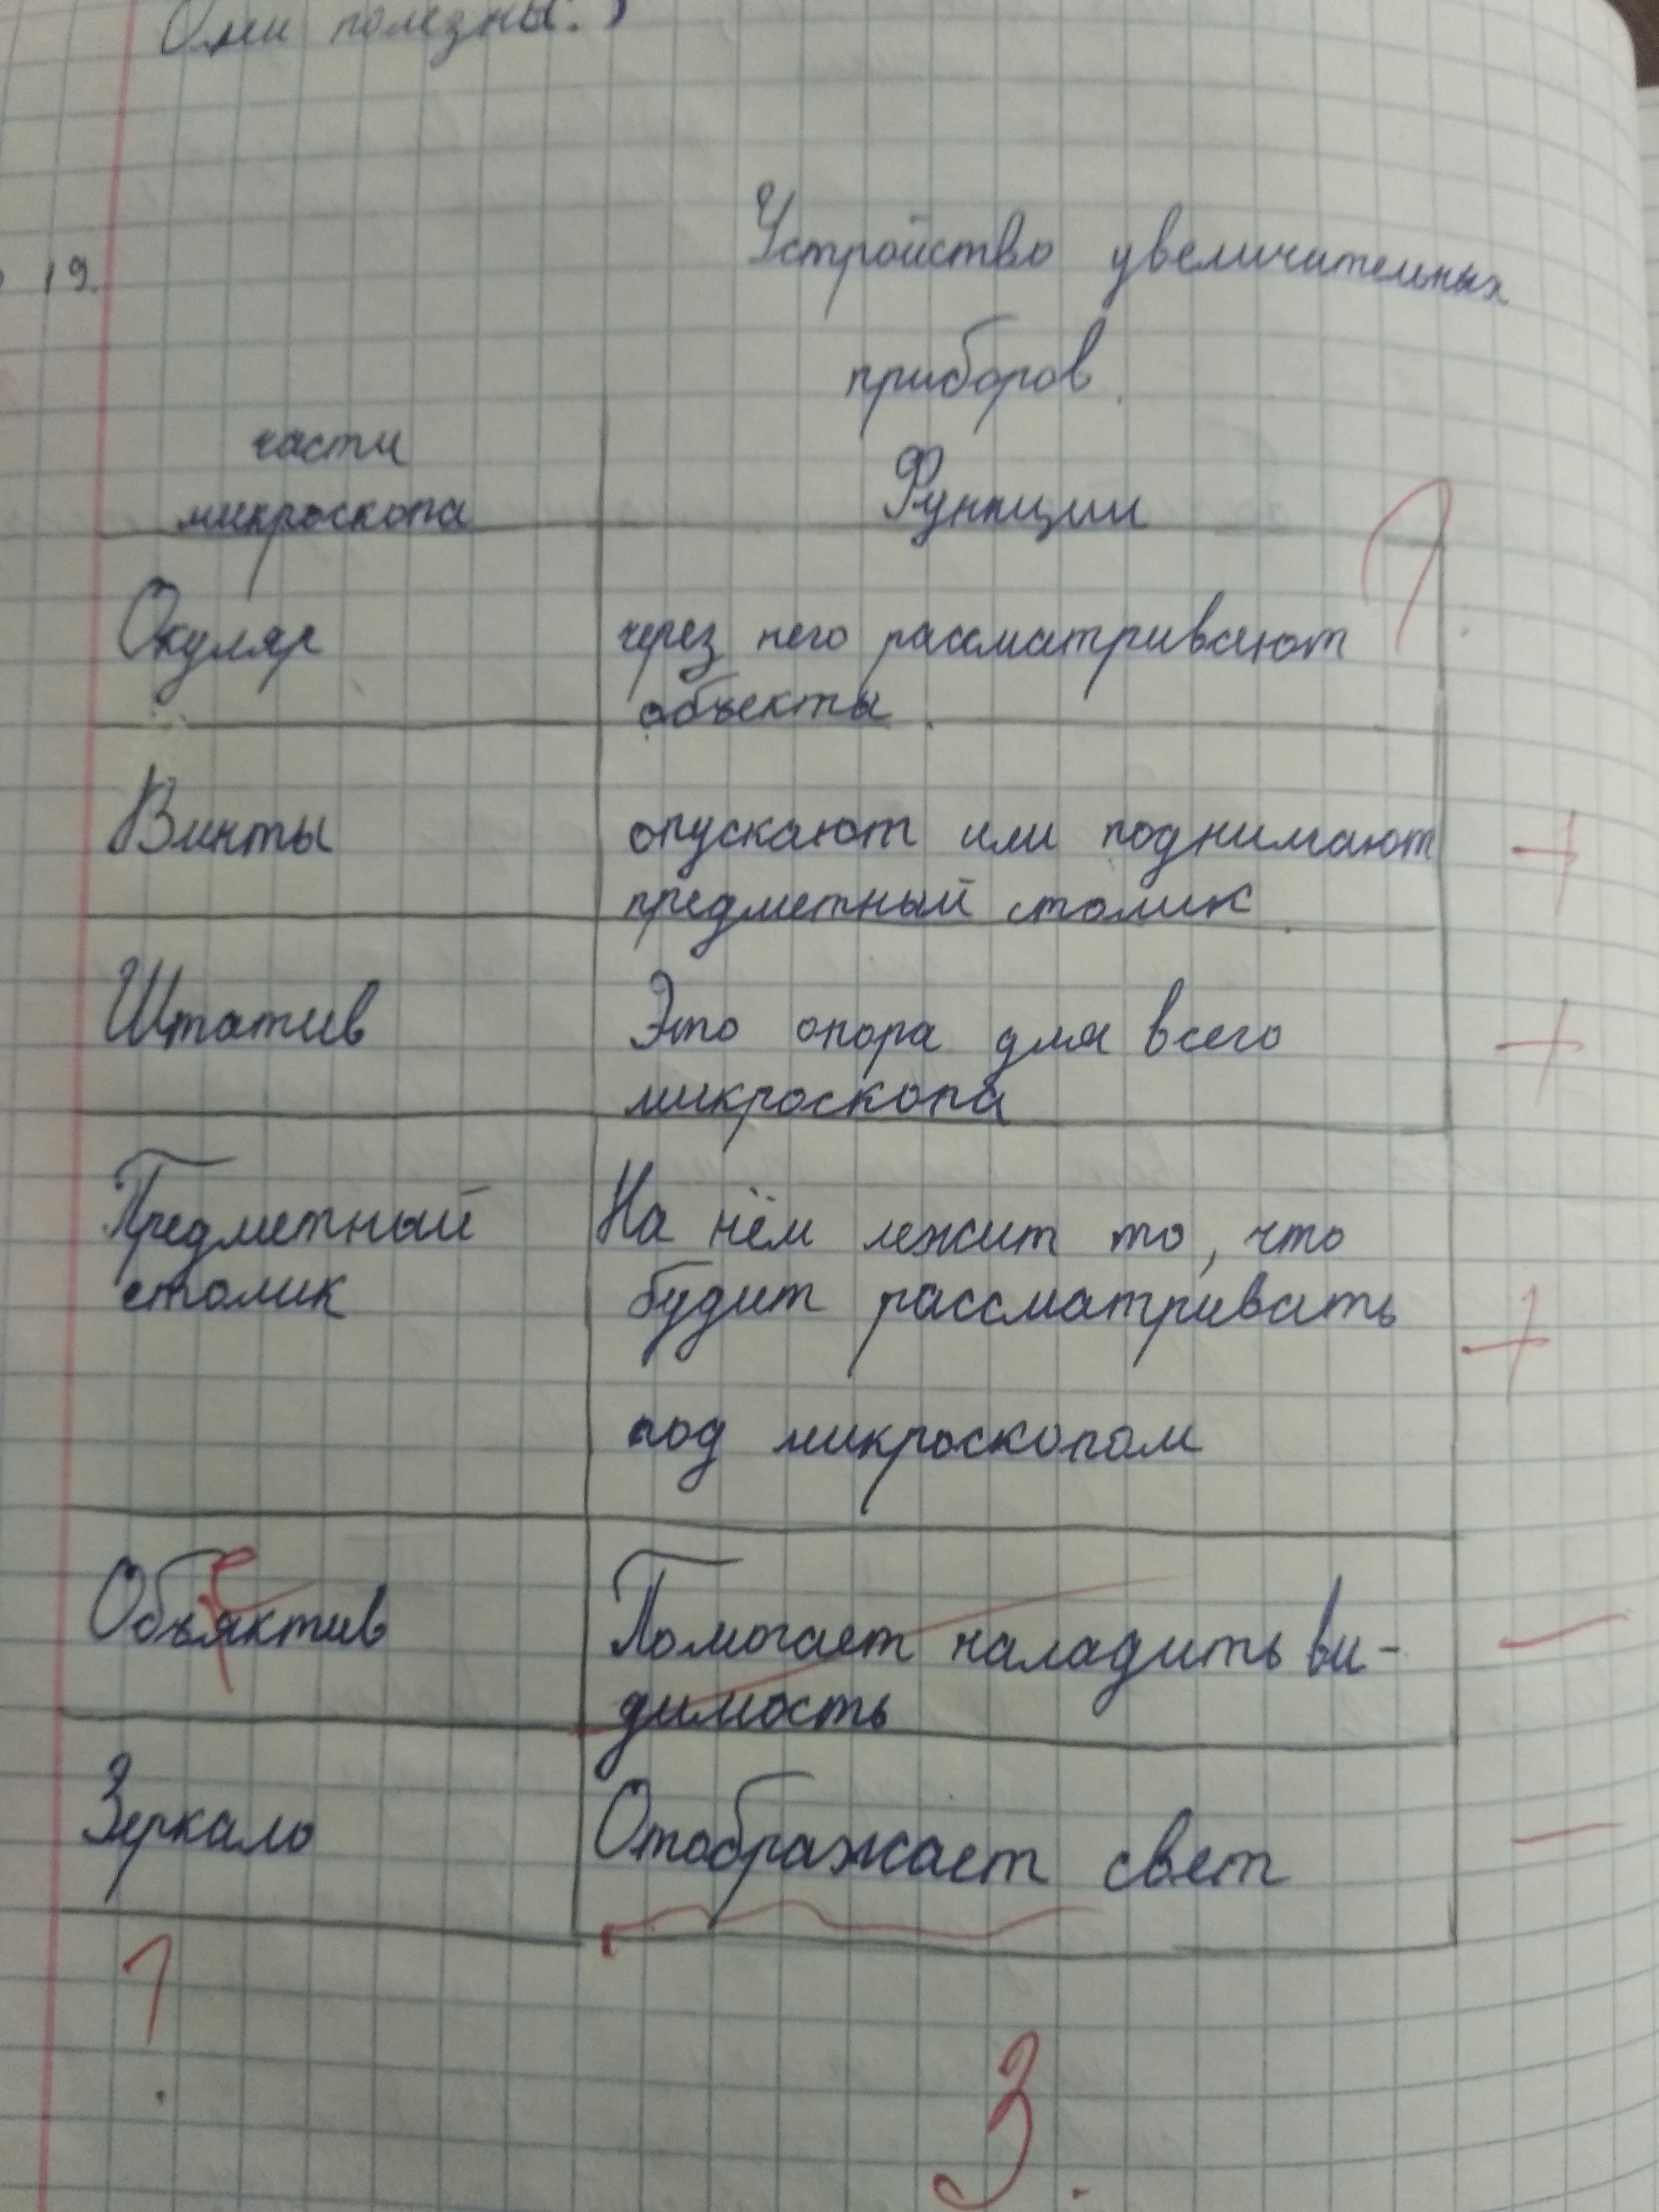 полезны.
19.
Устройство увеличительных
приборов.
части
микроскопа
Функции
?
Окуляр
через него рассматривают
объекты.
Винты
опускают или поднимают
предметный столик.
+
Штатив
Это опора для всего
микроскопа
+
Предметный
столик
На нём лежит то, что
будит рассматривать
под микроскопом
+
Объяктив
е
Помогает наладить ви-
димость
–
Зеркало
Отображает свет
–
?
3.